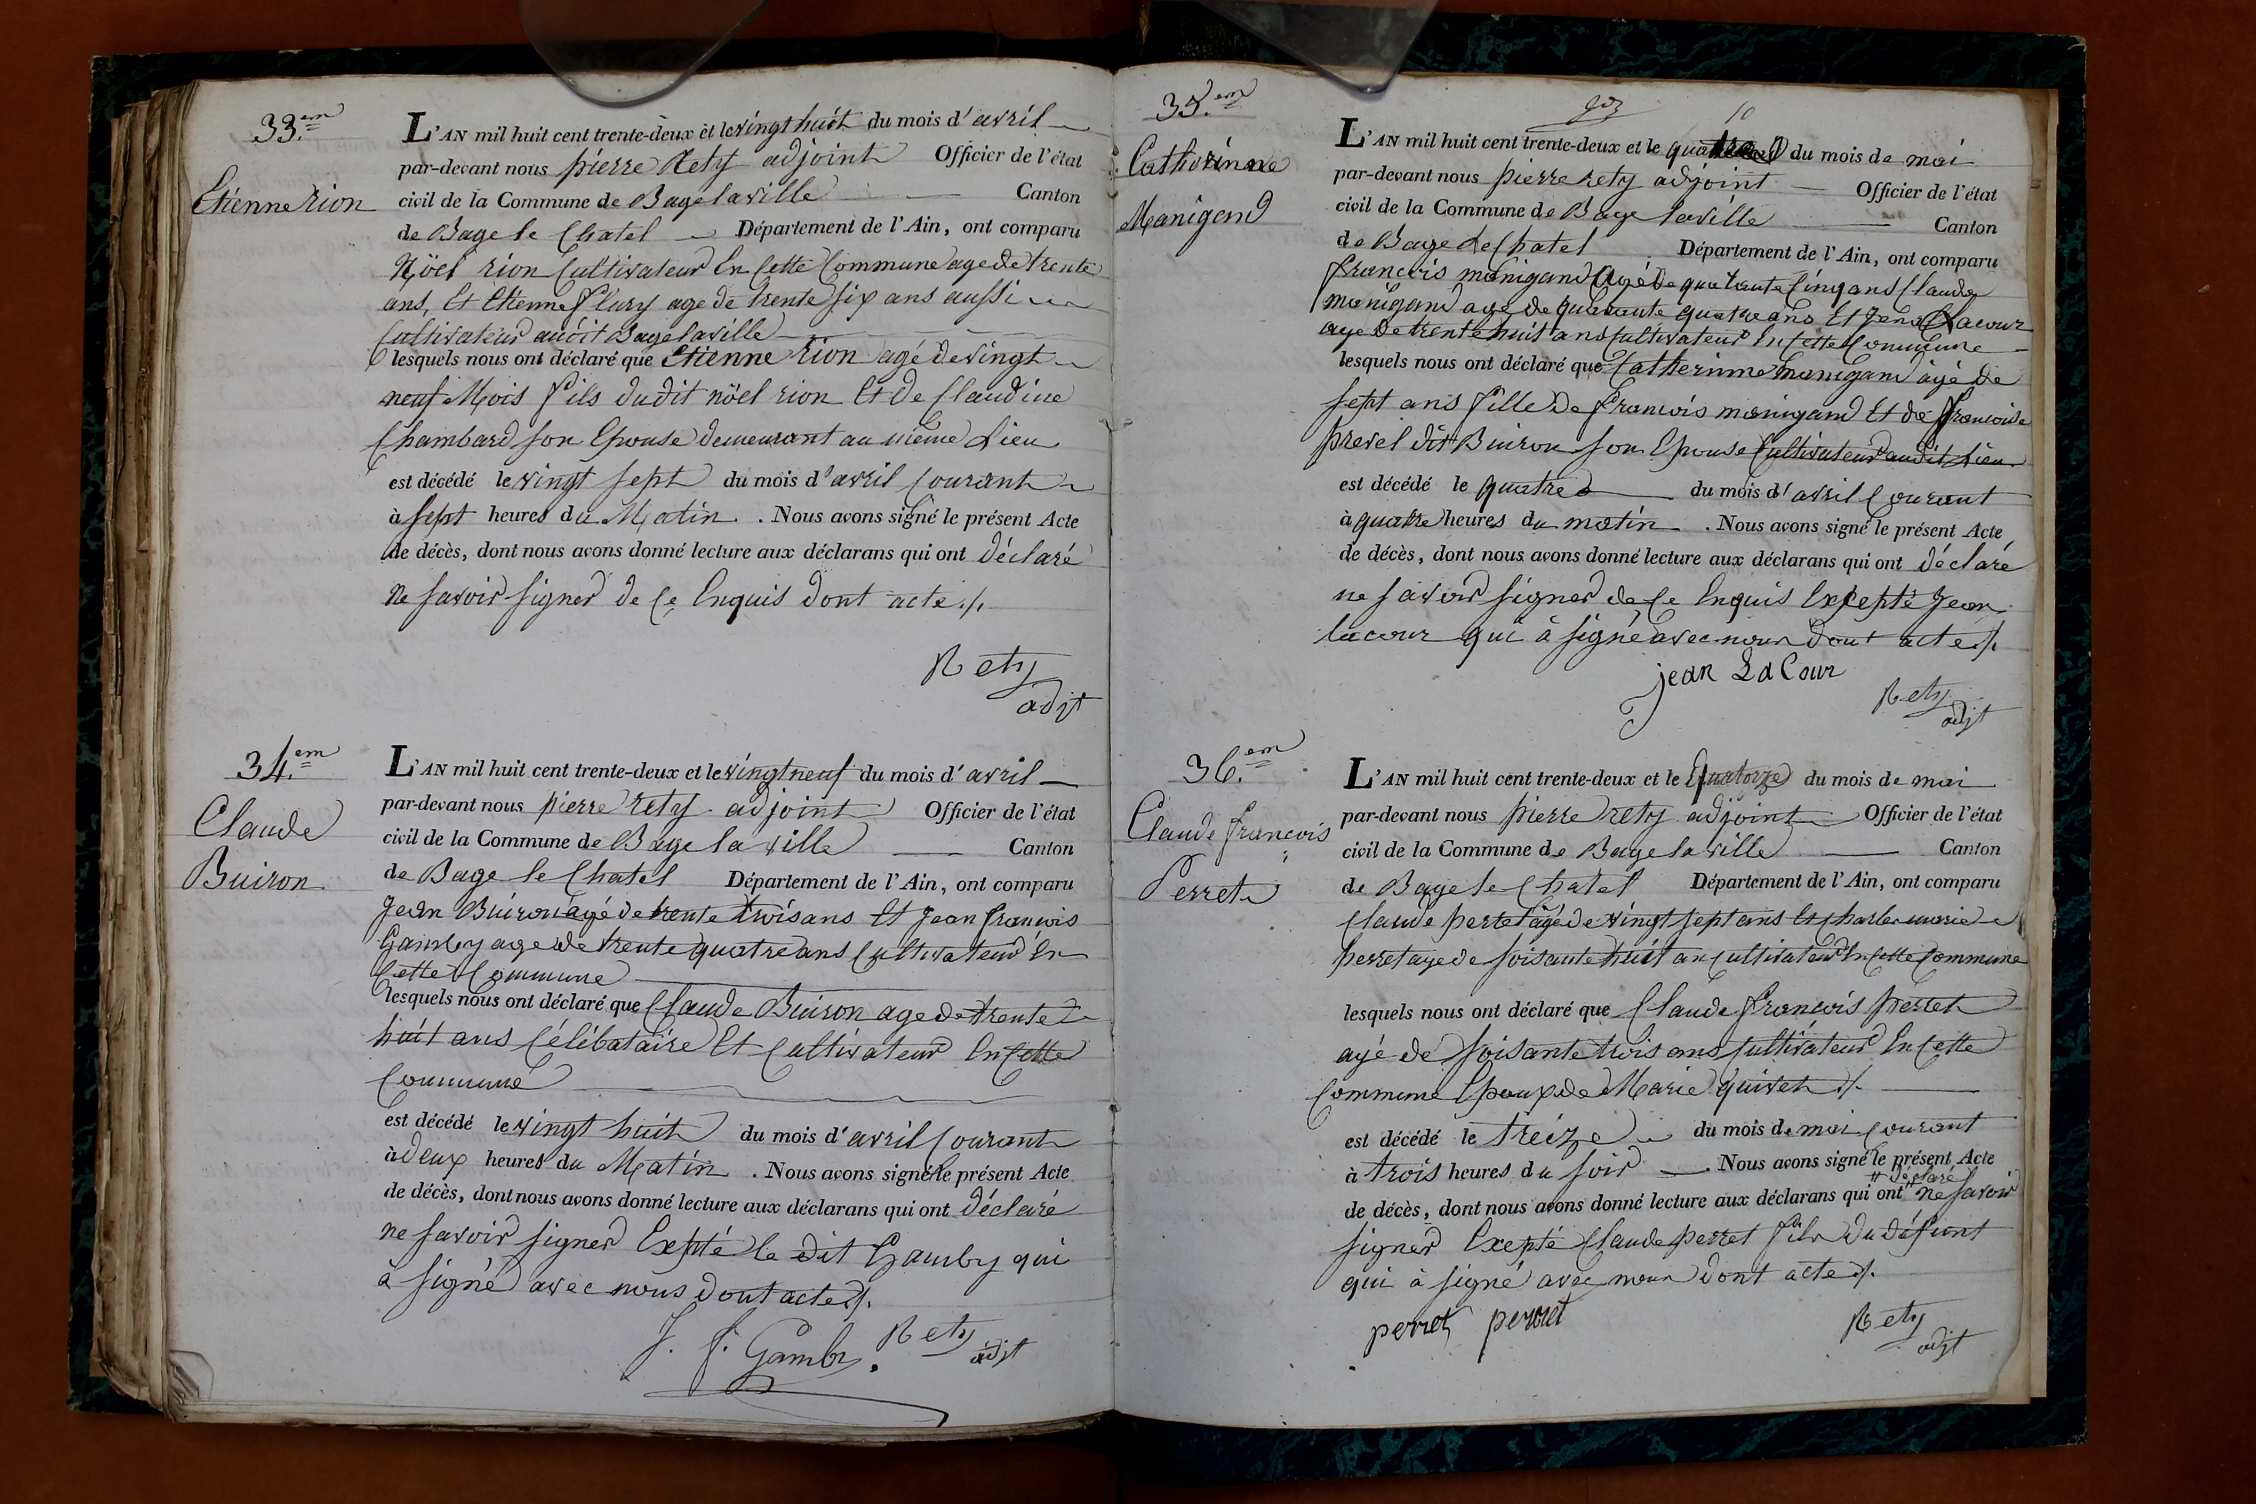 33.em
Etienne rion
L'AN mil huit cent trente-deux et le vingt huit du mois d'avril
par-devant nous pierre Rety adjoint Officier de l'état
civil de la Commune de Bage la ville Canton
de Bage le Chatel Département de l'Ain, ont comparu
Nöel rion Cultivateur En Cette Commune age de trente
ans, Et Etienne flury age de trente six ans aussi
Cultivateur audit Bage laville
lesquels nous ont déclaré que Etienne rion agé de vingt
neuf Mois fils dudit nöel rion Et de Claudine
Chambard son Epouse demeurant au même Lieu
est décédé le vingt sept du mois d'avril Courant
à sept heures du Matin. Nous avons signé le présent Acte
de décès, dont nous avons donné lecture aux déclarans qui ont déclaré
ne savoir signer de Ce Enquis dont acte ./.
Rety
adjt
34.em
Claude
Buiron
L'AN mil huit cent trente-deux et le vingt neuf du mois d'avril
par-devant nous pierre rety adjoint Officier de l'état
civil de la Commune de Bage la ville Canton
de Bage le Chatel Département de l'Ain, ont comparu
Jean Buiron agé de trente trois ans Et Jean francois
Gamby age de trente quatre ans Cultivateur En
Cette Commune
lesquels nous ont déclaré que Claude Buiron age de trente
huit ans Célébataire Et Cultivateur En Cette
Commune
est décédé le vingt huit du mois d'avril Courant
à deux heures du Matin. Nous avons signé le présent Acte
de décès, dont nous avons donné lecture aux déclarans qui ont déclaré
ne savoir signer Expté le dit Gamby qui
à signé avec nous dont acte ./.
J. f. Gamby. Rety
adjt
10
35.em
Catherinne
Manigand
L'AN mil huit cent trente-deux et le quatre du mois de mai
par-devant nous pierre rety adjoint Officier de l'état
civil de la Commune de Bage laville Canton
de Bage le Chatel Département de l'Ain, ont comparu
francois manigand agé de quarante Cinq ans Claude
manigand age de quarante quatre ans Et Jean Lacour
age de trente huit ans Cultivateur En Cette Commune
lesquels nous ont déclaré que Catherinne manigand âgé de
sept ans fille de francois manigand Et de francoise
prevel dit Buiron son Epouse Cultivateur audit Lieu
est décédé le quatre du mois d'avril Courant
à quatre heures du matin. Nous avons signé le présent Acte
de décès, dont nous avons donné lecture aux déclarans qui ont déclaré
ne savoir signer de Ce Enquis Excepté Jean
lacour qui à signé avec nous dont acte ./.
jean La Cour
Rety
adjt
36.em
Claude francois
Perret
L'AN mil huit cent trente-deux et le Quatorze du mois de mai
par-devant nous pierre rety adjoint Officier de l'état
civil de la Commune de Bage la ville Canton
de Bage le Chatel Département de l'Ain, ont comparu
Claude perret âgé de vingt sept ans Et Charle marie
perret age de soisante huit an Cultivateur En Cette Commune
lesquels nous ont déclaré que Claude francois perret
agé de soisante trois ans Cultivateur En Cette
Commune Epoux de Marie quivet ./.
est décédé le treize du mois de mai Courant
à trois heures du soir Nous avons signé le présent Acte
" déclaré
de décès, dont nous avons donné lecture aux déclarans qui ont " ne savoir
signer Excepté Claude perret fils du défunt
qui à signé avec nous dont acte ./.
perret perret
Rety
adjt